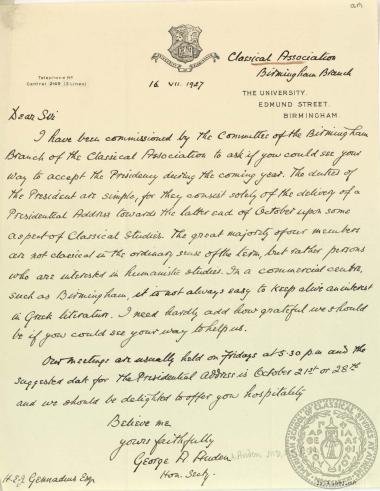 Classical Association
Birmingham Branch
Telephone Nº
Central 2149 (3 Lines)
16 VII. 1927
THE UNIVERSITY,
EDMUND STREET,
BIRMINGHAM.
Dear Sir
I have been commissioned by the Committee of the Birmingham
Branch of the Classical Association to ask if you could see your
way to accept the Presidency during the coming year. The duties of
the President are simple, for they consist solely of the delivery of a
Presidential Address towards the latter end of October upon some
aspect of Classical Studies. The great majority of our members
are not classical in the ordinary sense of the term, but rather persons
who are interested in humanistic studies. In a commercial centre,
such as Birmingham, it is not always easy to keep alive an interest
in Greek literature. I need hardly add how grateful we should
be if you could see your way to help us.
Our meetings are usually held on Fridays at 5.30 p.m and the
suggested date for the Presidential Address is October 21st or 28th
and we should be delighted to offer you hospitality
Believe me
yours faithfully
George A Auden
Hon. Secty.
H.E. J. Gennadius Esq